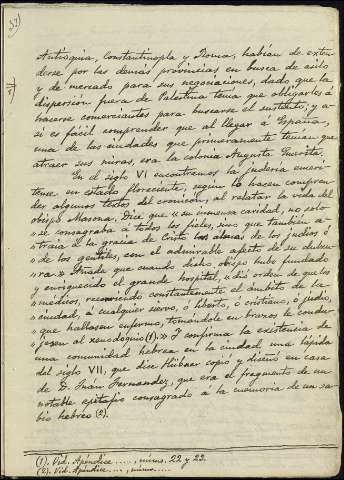 Antioquia, Constantinopla y Roma, habían de exten-
derse por las demás provincias en busca de asilo
y de mercado para sus negociaciones, dado que la
dispersion fuera de Palestina tenia que obligarles á
hacerse comerciantes para buscarse el sustento, y a-
si es fácil comprender que al llegar á España,
una de las ciudades que primeramente tenian que
atraer sus miras, era la colonia Augusta Emerita.
En el siglo VI encontramos la judería emeri-
tense en estado floreciente, segun lo hacen compren-
der algunos textos del cronicón, al relatar la vida del
obispo Masona. Dice que « su inmensa caridad, no solo
» se consagraba á todos los fieles, sino que tambien a-
» traia á la gracia de Cristo las almas de los judios ó
» de los gentiles, con el admirable afecto de su dulzu-
» ra.» Añade que cuando dicho obispo hubo fundado
y enriquecido el grande hospital, « dió orden de que los
» médicos, recorriendo constantemente el ámbito de la
» ciudad, á cualquier siervo, ó liberto, ó cristiano, ó judio,
» que hallasen enfermo, tomándole en brazos le condu-
» jesen al xenodoquio (1).» Y confirma la existencia de
una comunidad hebrea en la ciudad una lápida
del siglo VII, que dice Hübner copió y diseñó en casa
de D. Juán Fernandez, que era el fragmento de un
notable epitafio consagrado á la memoria de un sa-
bio hebreo (2).
(1). Vid. Apéndice ....., núms. 22 y 23.
(2). Vid. Apéndice ...., núms. ....